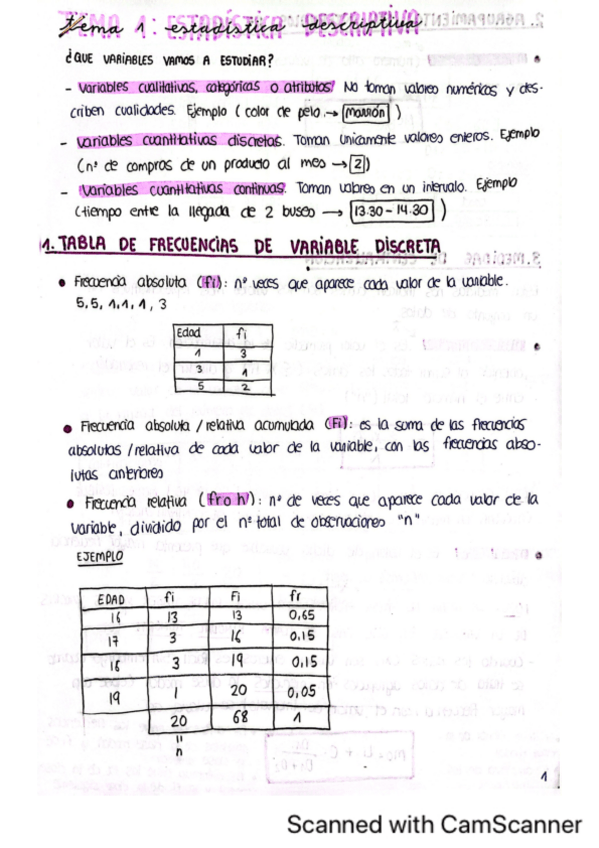 TEMA 1: ESTADÍSTICA DESCRIPTIVA
Tema 1 estadística descriptiva
¿QUE VARIABLES VAMOS A ESTUDIAR?
- Variables cualitativas, categóricas o atributos: No toman valores numéricos y des-
criben cualidades. Ejemplo (color de pelo → marrón)
- Variables cuantitativas discretas. Toman únicamente valores enteros. Ejemplo
(nº de compras de un producto al mes → 2)
- Variables cuantitativas continuas. Toman valores en un intervalo. Ejemplo
(tiempo entre la llegada de 2 buses → 13.30 - 14.30)
1. TABLA DE FRECUENCIAS DE VARIABLE DISCRETA
• Frecuencia absoluta (fi): nº veces que aparece cada valor de la variable.
5, 5, 1, 1, 1, 3
Edad fi
1 3
3 1
5 2
• Frecuencia absoluta / relativa acumulada (Fi): es la suma de las frecuencias
absolutas / relativa de cada valor de la variable, con las frecuencias abso-
lutas anteriores
• Frecuencia relativa (fr o h): nº de veces que aparece cada valor de la
variable, dividido por el nº total de observaciones "n"
EJEMPLO
EDAD fi Fi fr
16 13 13 0,65
17 3 16 0,15
18 3 19 0,15
19 1 20 0,05
20 68 1
"
n
1
Scanned with CamScanner